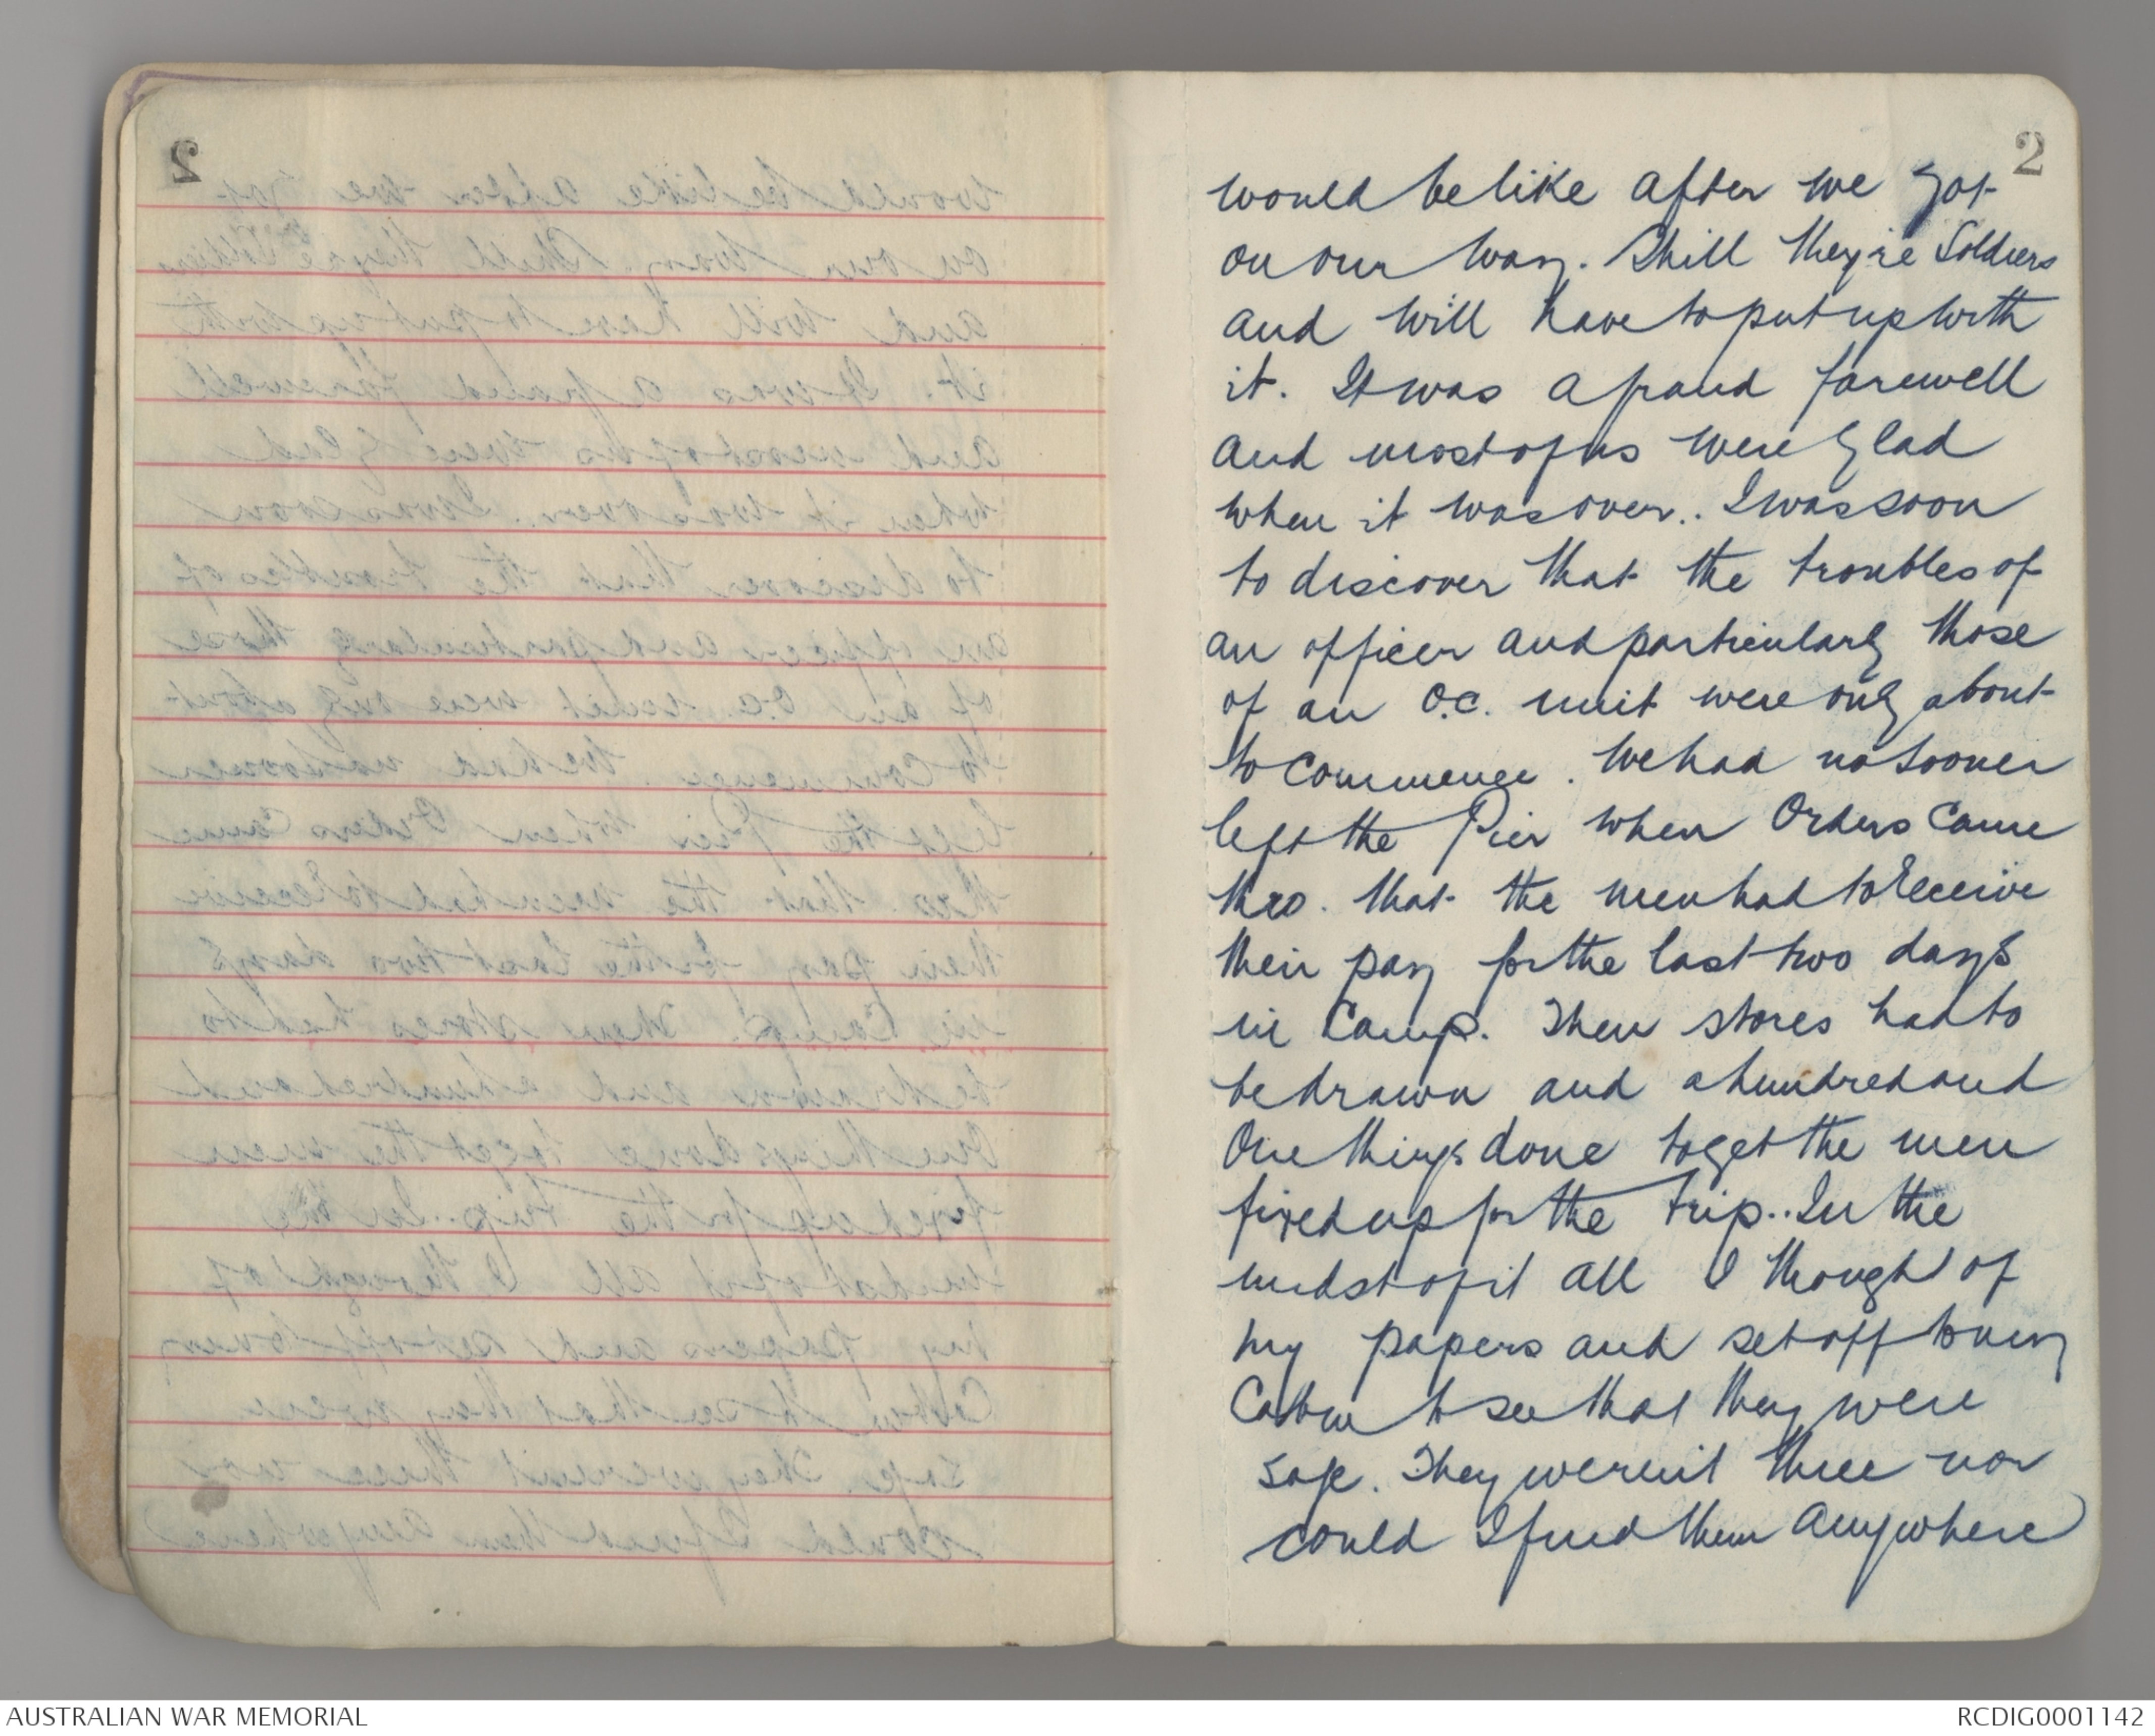 2
would be like after we got
on our way. Still they're Soldiers
and will have to put up with
it. It was a proud farewell
and most of us were glad
when it was over.. I was soon
to discover that the troubles of
an officer and particularly those
of an O.C. unit were only about
to commence. We had no sooner
left the Pier when Orders came
thro. that the men had to receive
their pay for the last two days
in Camp. Then stores had to
be drawn and a hundred and
One things done to get the men
fixed up for the trip.. In the
midst of it all I thought of
my papers and set off to my
Cabin to see that they were
safe. They weren't there nor
could I find them anywhere
AUSTRALIAN WAR MEMORIAL
RCDIG0001142